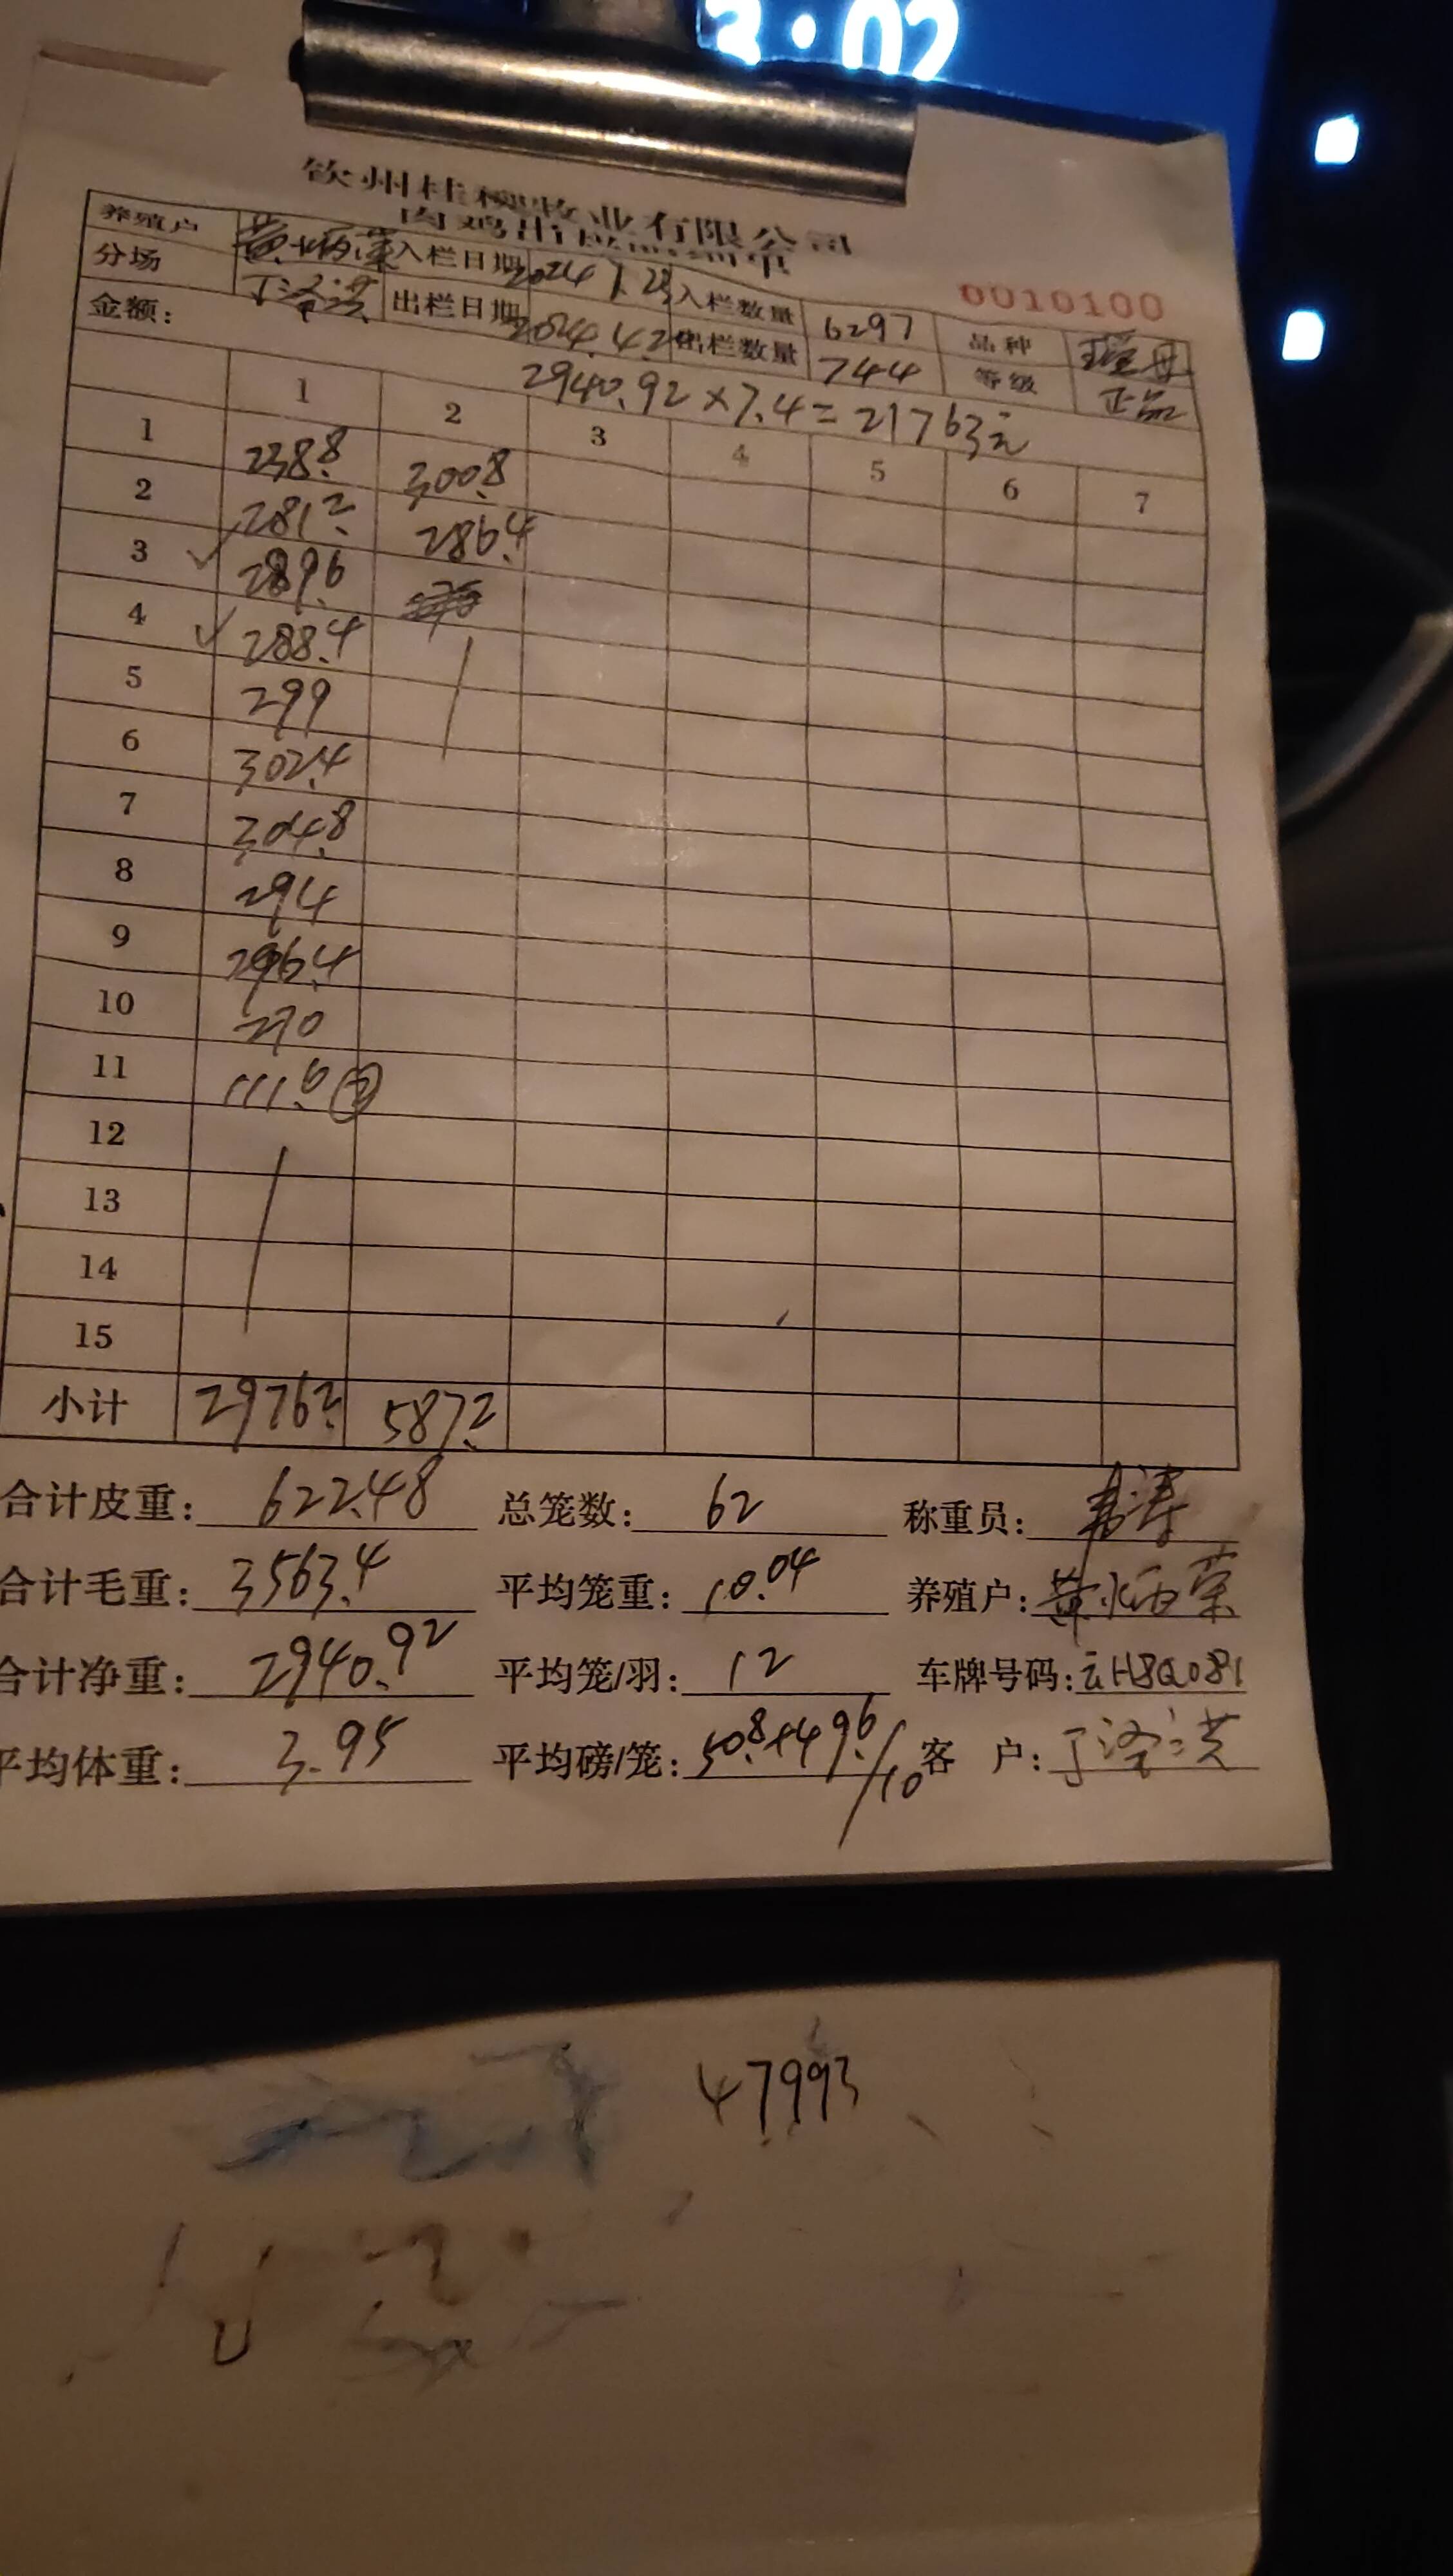 3:02
钦州桂柳牧业有限公司
0010100
养殖户 黄炳荣 入栏日期 2024.1.23 入栏数量 6297 品种
分场 丁泽洪 出栏日期 出栏数量 744 等级 正品
金额: 2940.92×7.4=21763元
1 2 3 4 5 6 7
1 238.8 300.8
2 281.2 286.4
3 ✓ 289.6
4 ✓ 288.4
5 299
6 302.4
7 304.8
8 294
9 296.4
10 270
11 111.6 ②
12
13
14
15
小计 2976.2 587.2
合计皮重: 622.48 总笼数: 62 称重员: 韦涛
合计毛重: 3563.4 平均笼重: 10.04 养殖户: 黄炳荣
合计净重: 2940.92 平均笼/羽: 12 车牌号码: 云H8Q081
平均体重: 3.95 平均磅/笼: 50.8+49.6/10 客 户: 丁泽洪
47993